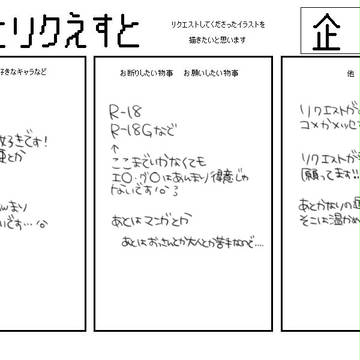 とりクえすと
リクエストしてくださったイラストを
描きたいと思います
企
好きなキャラなど
お断りしたい物事 お願いしたい物事
他
R-18
R-18Gなど
↑
ここまでいかなくても
エ〇・グ〇はあんまり得意じゃ
ないです
あとはマンガとか
あとはおっさんとか大人とか苦手なので…
きです!
とか
んまり
いです…
リクエストが
コメかメッセ
リクエストが
願ってます!!
あとかなりの
そこは温かめ